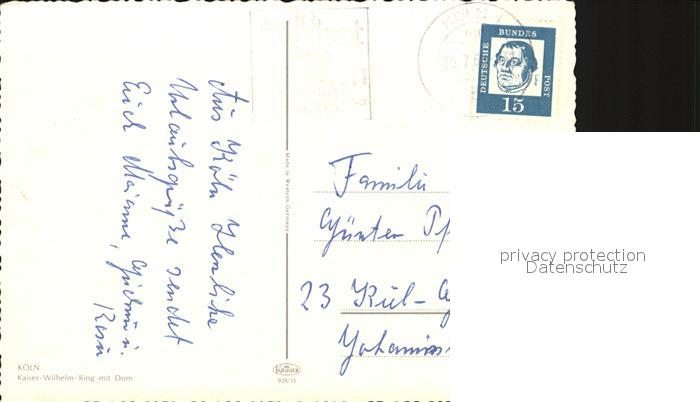 Aus Köln herzliche
Urlaubsgrüße sendet
Euch Marianne, Günter u.
KÖLN
Kaiser-Wilhelm-Ring mit Dom
Made in Western Germany
Krüger
928/35
KÖLN
DEUTSCHE BUNDESPOST
15
Familie
Günter Pf
23 Kiel-
Johannis
privacy protection
Datenschutz